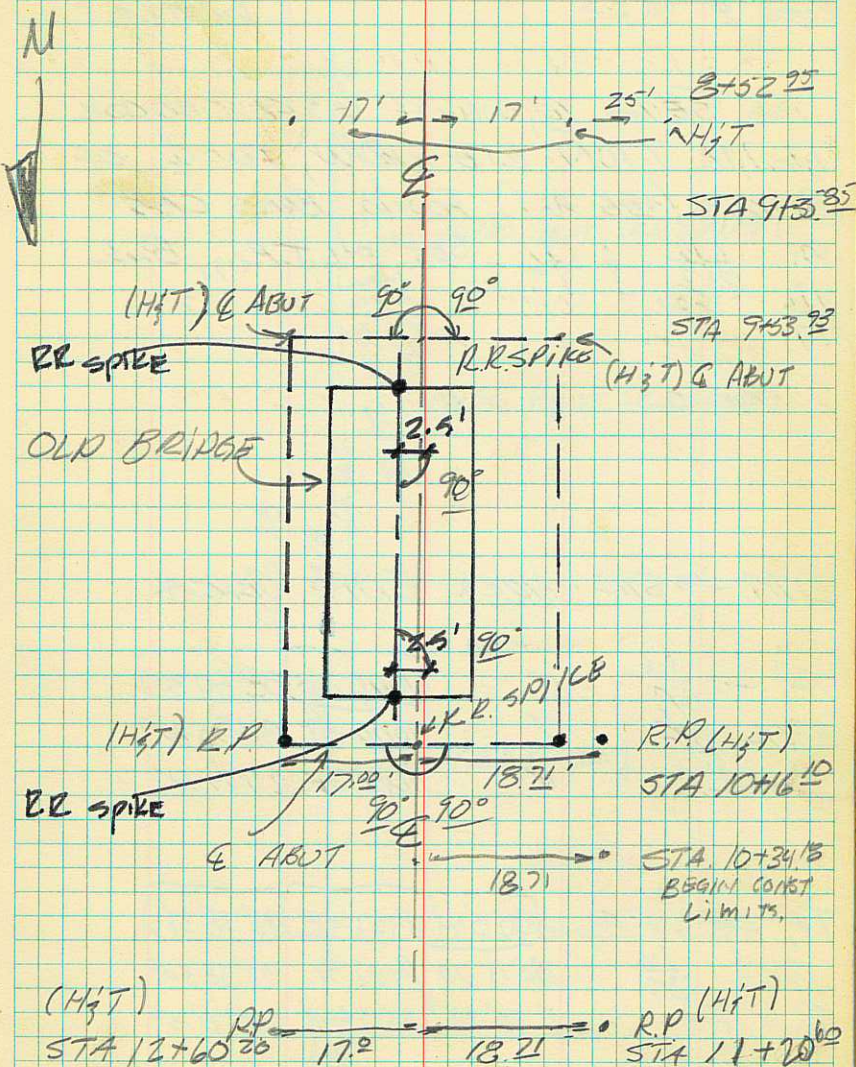 N
8+52 95
17' 17' 25'
H&T
℄
STA 9+35 85
(H&T) ℄ ABUT 90° 90°
STA 9+53.93
RR SPIKE R.R. SPIKE
(H&T) ℄ ABUT
2.5'
OLD BRIDGE
90°
2.5' 90°
R.R. SPIKE
(H&T) R.P. R.P. (H&T)
17.00' 18.71' STA 10+16 10
RR SPIKE 90° 90°
℄
℄ ABUT STA. 10+34 18
18.71 BEGIN CONST
LIMITS.
(H&T) (H&T)
R.P. R.P
STA 12+60 20 17.0 18.71 STA 11+20 60